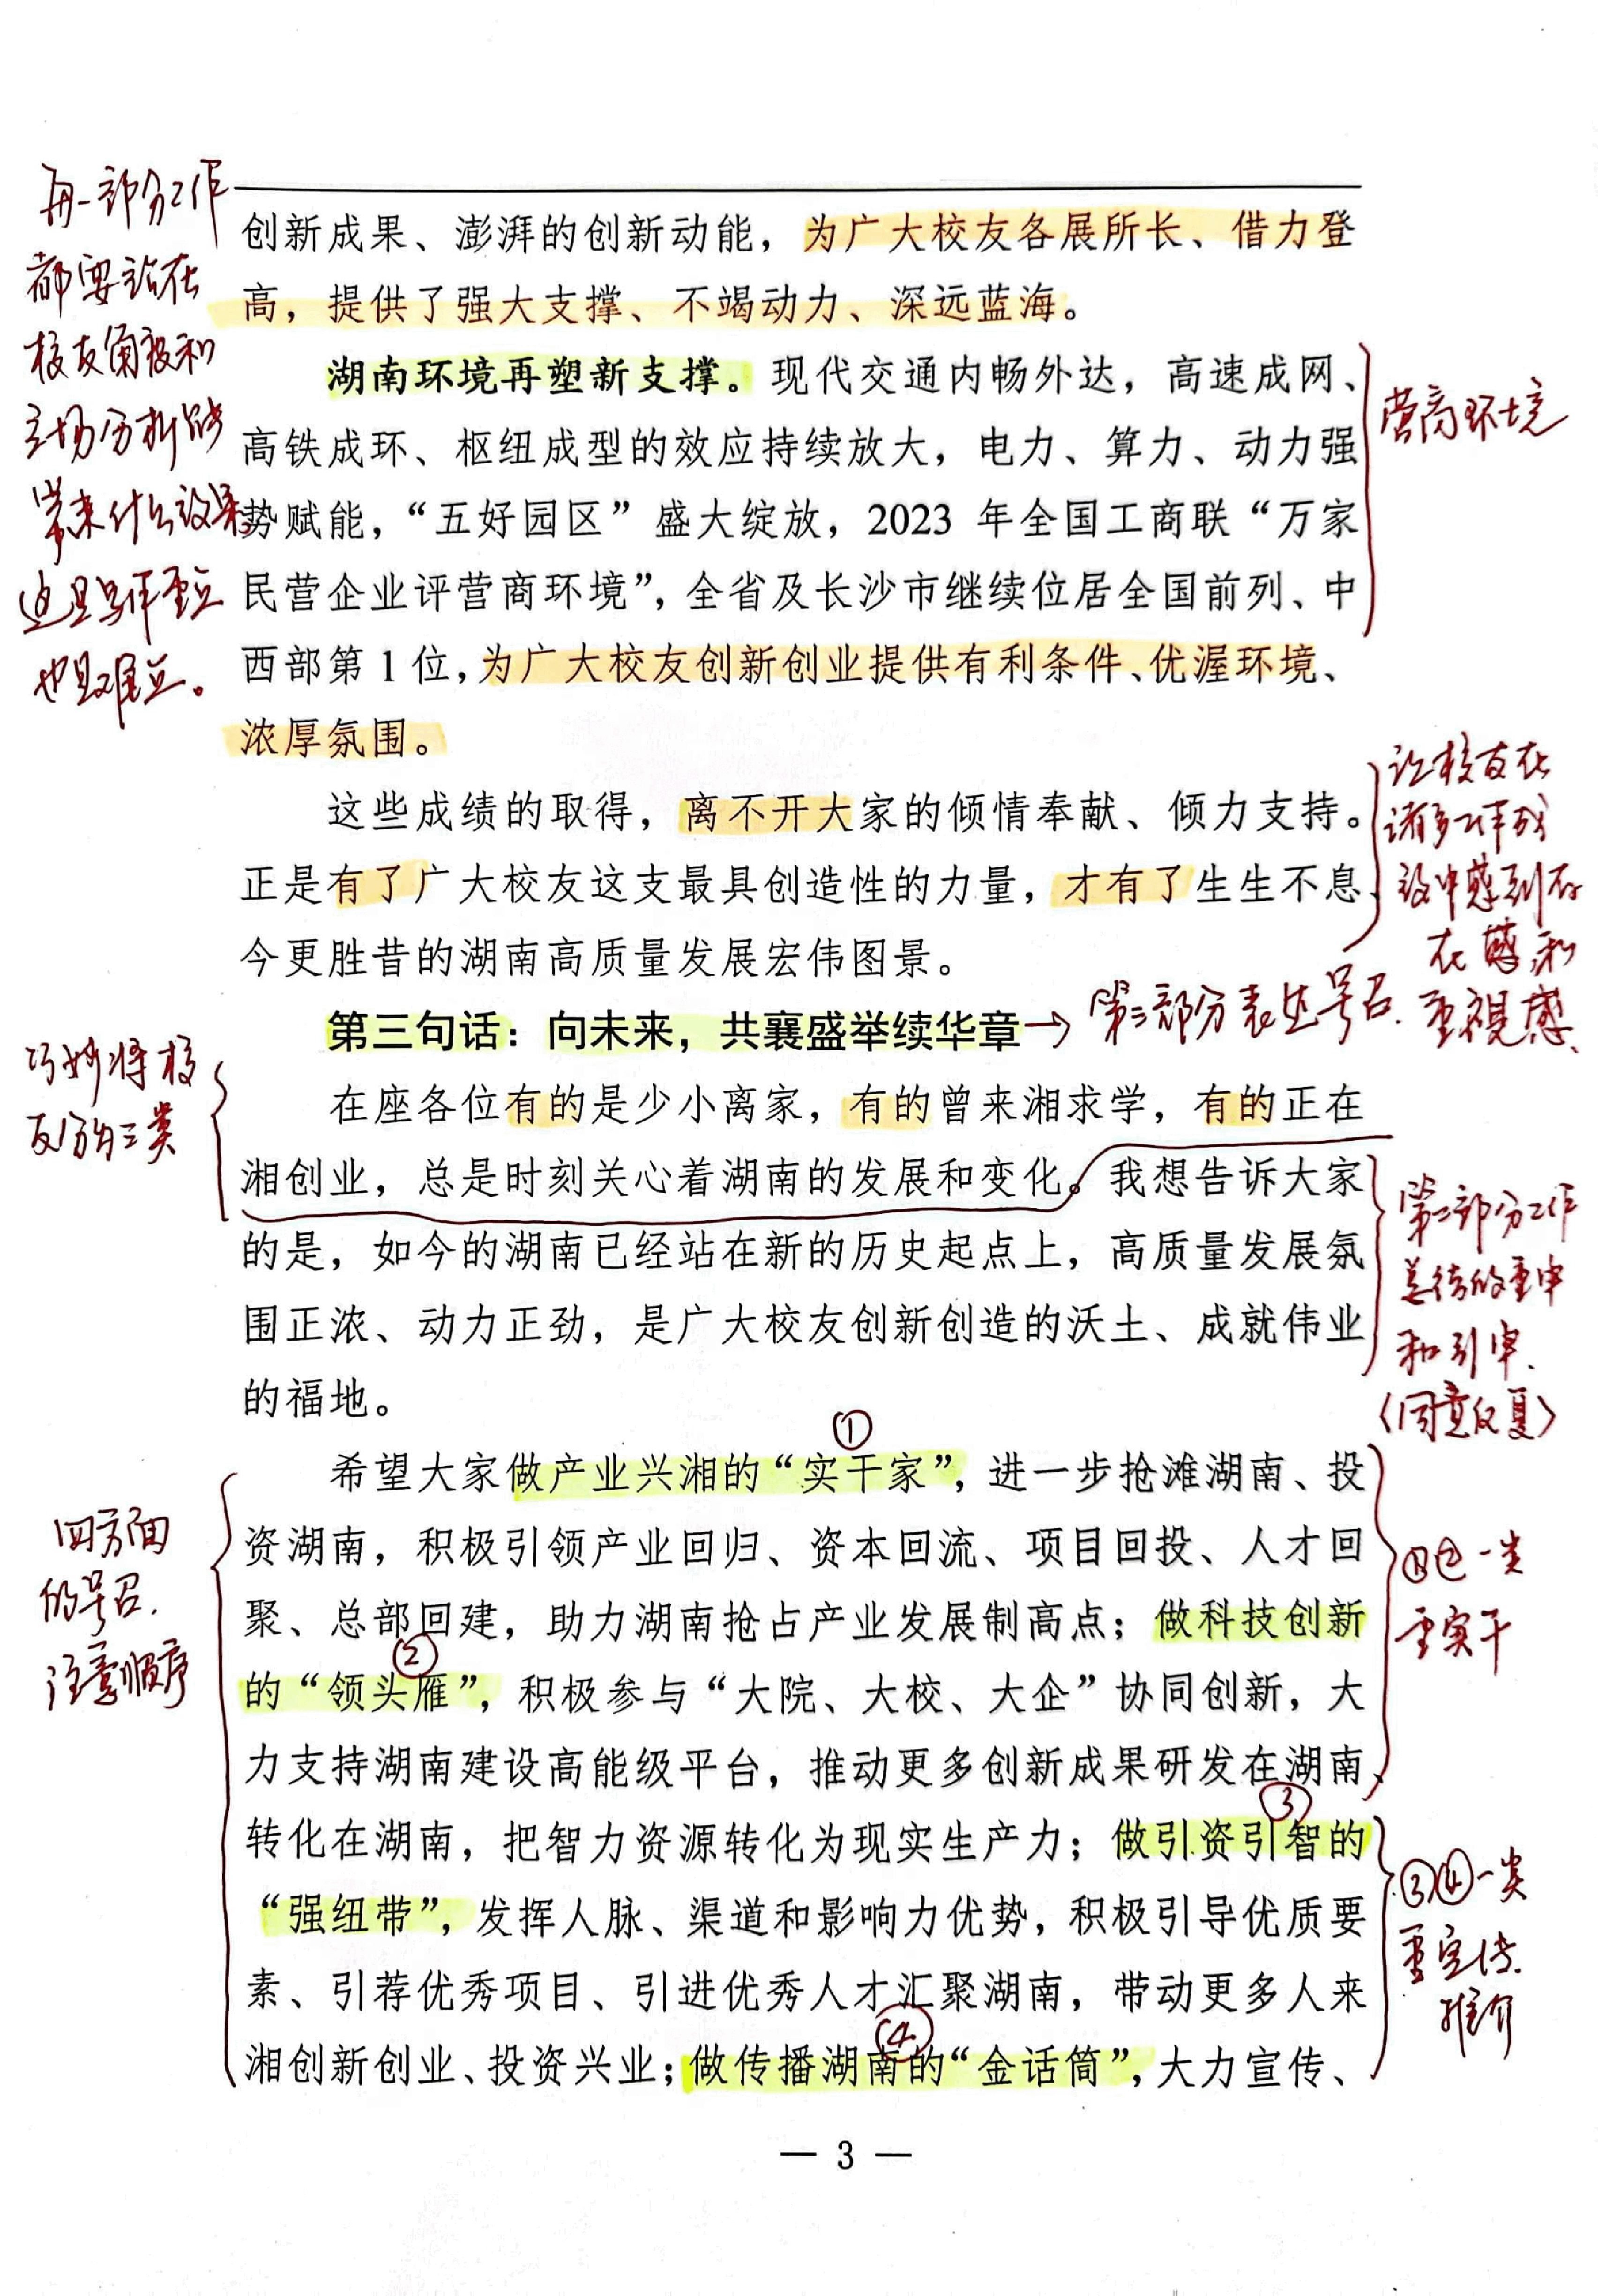 再一部分工作
都要站在
校友角度和
立场分析能
带来什么效果,
这是写作重点
也是难点。
创新成果、澎湃的创新动能，为广大校友各展所长、借力登
高，提供了强大支撑、不竭动力、深远蓝海。
湖南环境再塑新支撑。现代交通内畅外达，高速成网、
高铁成环、枢纽成型的效应持续放大，电力、算力、动力强
势赋能，“五好园区”盛大绽放，2023 年全国工商联“万家
民营企业评营商环境”，全省及长沙市继续位居全国前列、中
西部第 1 位，为广大校友创新创业提供有利条件、优渥环境、
浓厚氛围。
营商环境
这些成绩的取得，离不开大家的倾情奉献、倾力支持。
正是有了广大校友这支最具创造性的力量，才有了生生不息、
今更胜昔的湖南高质量发展宏伟图景。
让校友在
诸多工作成
效中感到存
在感和
重视感.
第三句话：向未来，共襄盛举续华章
→第三部分表达号召.
巧妙将校
友分为三类
在座各位有的是少小离家，有的曾来湘求学，有的正在
湘创业，总是时刻关心着湖南的发展和变化。我想告诉大家
的是，如今的湖南已经站在新的历史起点上，高质量发展氛
围正浓、动力正劲，是广大校友创新创造的沃土、成就伟业
的福地。
第二部分工作
总结的重申
和引申.
（同意反复）
四方面
的号召.
注意顺序
①
希望大家做产业兴湘的“实干家”，进一步抢滩湖南、投
资湖南，积极引领产业回归、资本回流、项目回投、人才回
聚、总部回建，助力湖南抢占产业发展制高点；做科技创新
②
的“领头雁”，积极参与“大院、大校、大企”协同创新，大
力支持湖南建设高能级平台，推动更多创新成果研发在湖南、
③
转化在湖南，把智力资源转化为现实生产力；做引资引智的
“强纽带”，发挥人脉、渠道和影响力优势，积极引导优质要
素、引荐优秀项目、引进优秀人才汇聚湖南，带动更多人来
④
湘创新创业、投资兴业；做传播湖南的“金话筒”，大力宣传、
①②一类
重实干
③④一类
重宣传.
推介
— 3 —